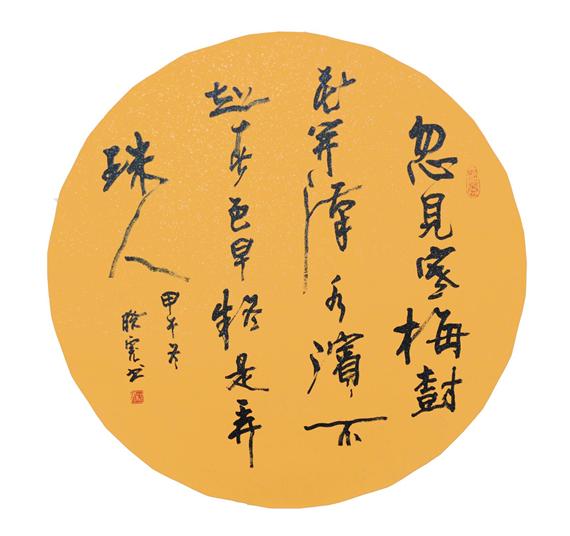 忽見寒梅樹
花開漢水濱不
知春色早疑是弄
珠人
甲午冬
書